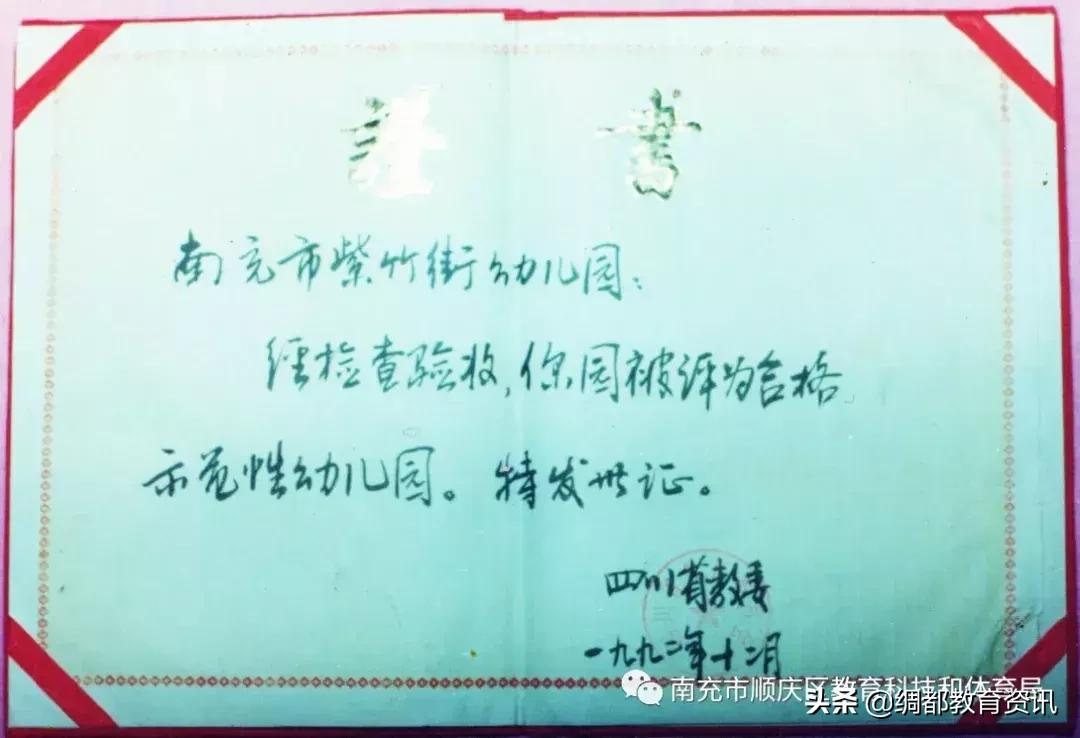 證書
南充市紫竹街幼儿园：
经检查验收，你园被评为合格
示范性幼儿园。特发此证。
四川省教委
一九九二年十二月
南充市顺庆区教育科技和体育局
头条 @绸都教育资讯